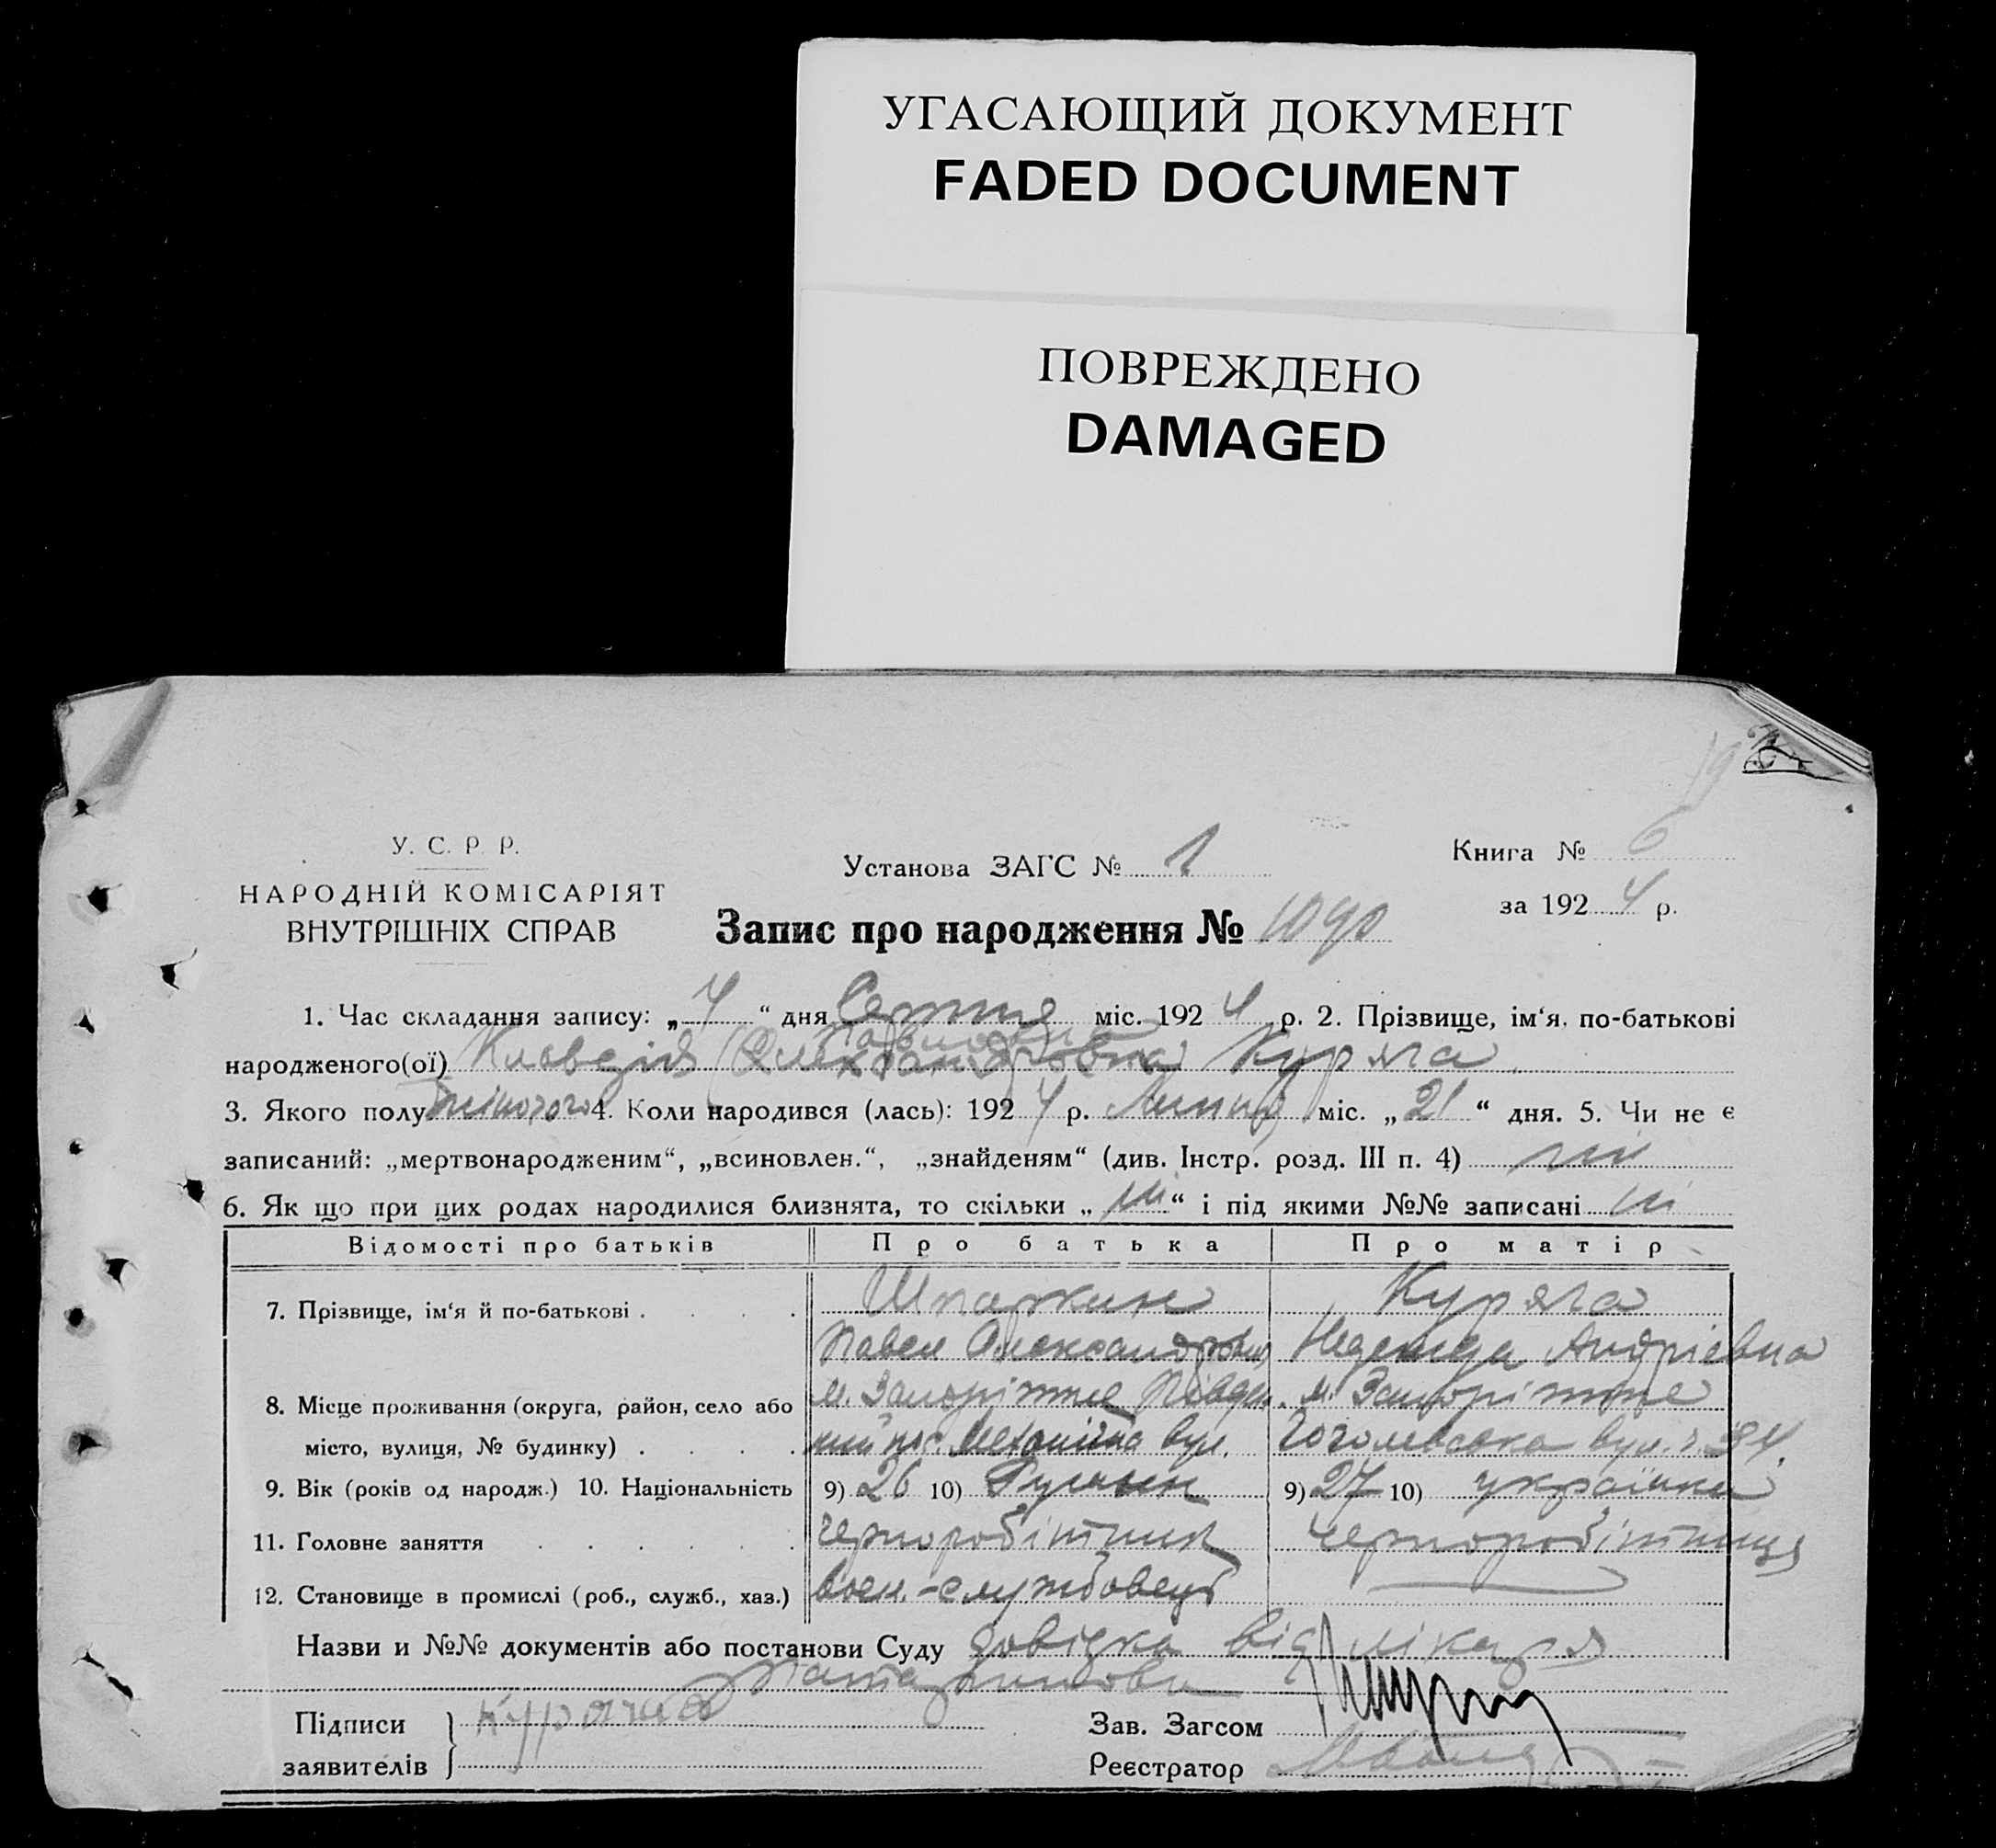 УГАСАЮЩИЙ ДОКУМЕНТ
FADED DOCUMENT
ПОВРЕЖДЕНО
DAMAGED
У. С. Р. Р.
НАРОДНІЙ КОМІСАРІЯТ
ВНУТРІШНІХ СПРАВ
Установа ЗАГС № 1
Книга № 6
за 1924 р.
Запис про народження № 1090
1. Час складання запису: „4“ дня Септне міс. 1924 р. 2. Прізвище, ім‘я, по-батькові
Павловна
народженого(ої) Клавдія (Александровна Куряча
3. Якого полу жіночого 4. Коли народився (лась): 1924 р. Липня міс. „21“ дня. 5. Чи не є
записаний: „мертвонародженим“, „всиновлен.“, „знайденям“ (див. Інстр. розд. III п. 4) ні
6. Як що при цих родах народилися близнята, то скільки „ні“ і під якими №№ записані ні
Відомості про батьків Про батька Про матір
7. Прізвище, ім‘я й по-батькові . . . . Шпаркин Куряча
Павел Олександрович Надежда Андрієвна
8. Місце проживання (округа, район, село або м. Запоріжже Півден- м. Запоріжже
місто, вулиця, № будинку) . . . . ний пос. Механічна вул. Гоголевська вул. ч. 34
9. Вік (років од народж.) 10. Національність 9) 26 10) Русский 9) 27 10) українка
11. Головне заняття . . . . . . чернороботник чорноробітниця
12. Становище в промислі (роб., служб., хаз.) воен.-службовець
Назви и №№ документів або постанови Суду довідка від лікаря
Підписи
заявителів
Курячая
Зав. Загсом
Реєстратор